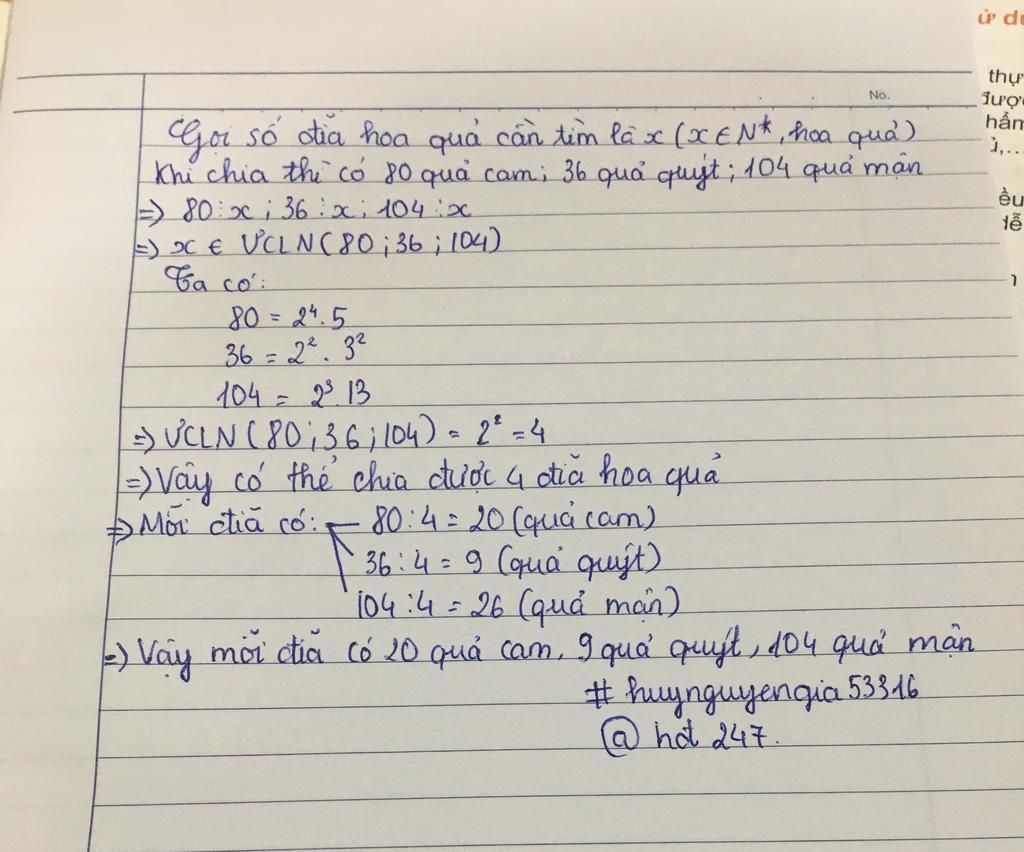 ử dụ
thự
được
hẩm
ủ,...
ều
dễ
No.
Gọi số đĩa hoa quả cần tìm là x (x ∈ N*, hoa quả)
Khi chia thì có 80 quả cam; 36 quả quýt; 104 quả mận
=> 80 ⋮ x ; 36 ⋮ x ; 104 ⋮ x
=> x ∈ ƯCLN(80 ; 36 ; 104)
Ta có:
80 = 2⁴. 5
36 = 2² . 3²
104 = 2³. 13
=> ƯCLN(80 ; 36 ; 104) = 2² = 4
=> Vậy có thể chia được 4 đĩa hoa quả
=> Mỗi đĩa có: 80 : 4 = 20 (quả cam)
36 : 4 = 9 (quả quýt)
104 : 4 = 26 (quả mận)
=> Vậy mỗi đĩa có 20 quả cam, 9 quả quýt, 104 quả mận
# huynguyengia53316
@ hđ 247.